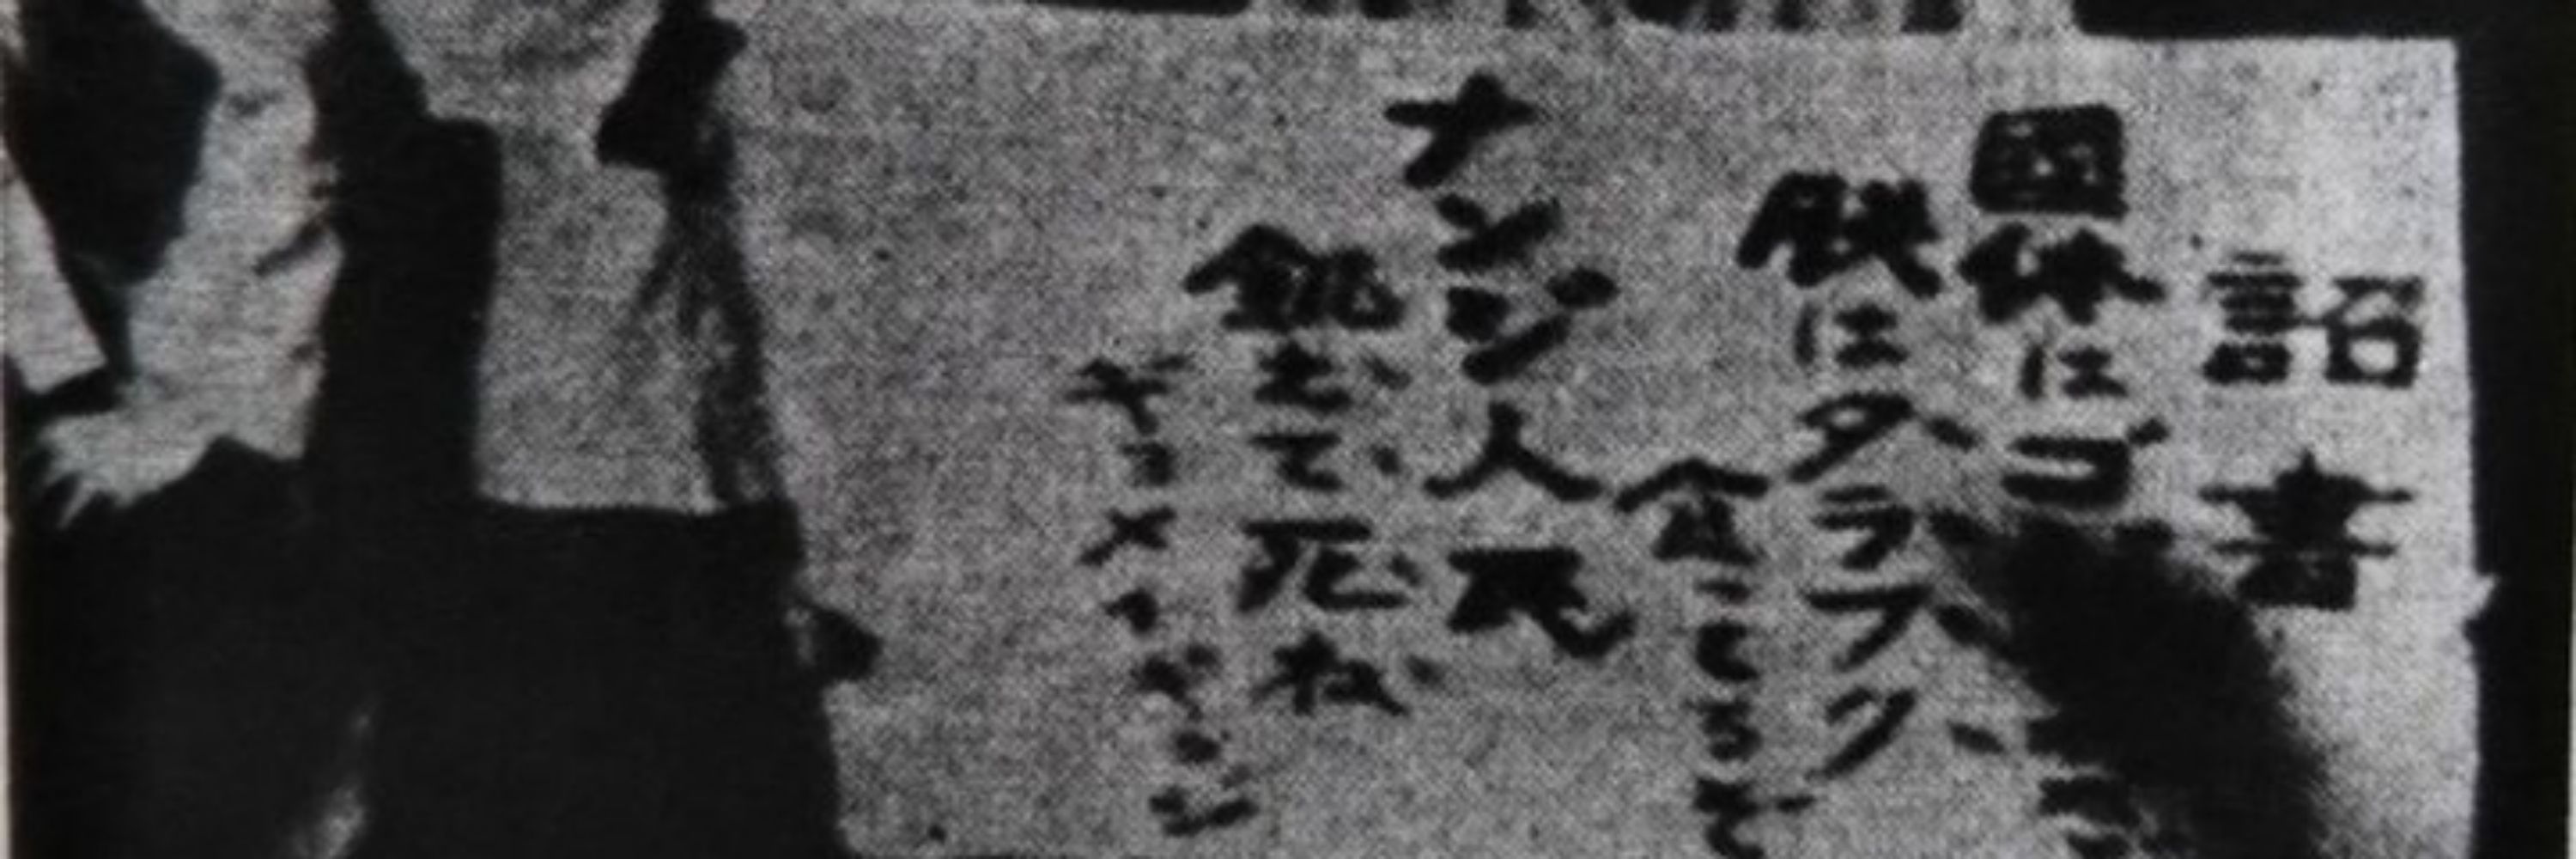 詔書
国体はゴ
朕はタラフク
食ってるぞ
ナンジ人民
飢えて死ね
ギョメイギョジ